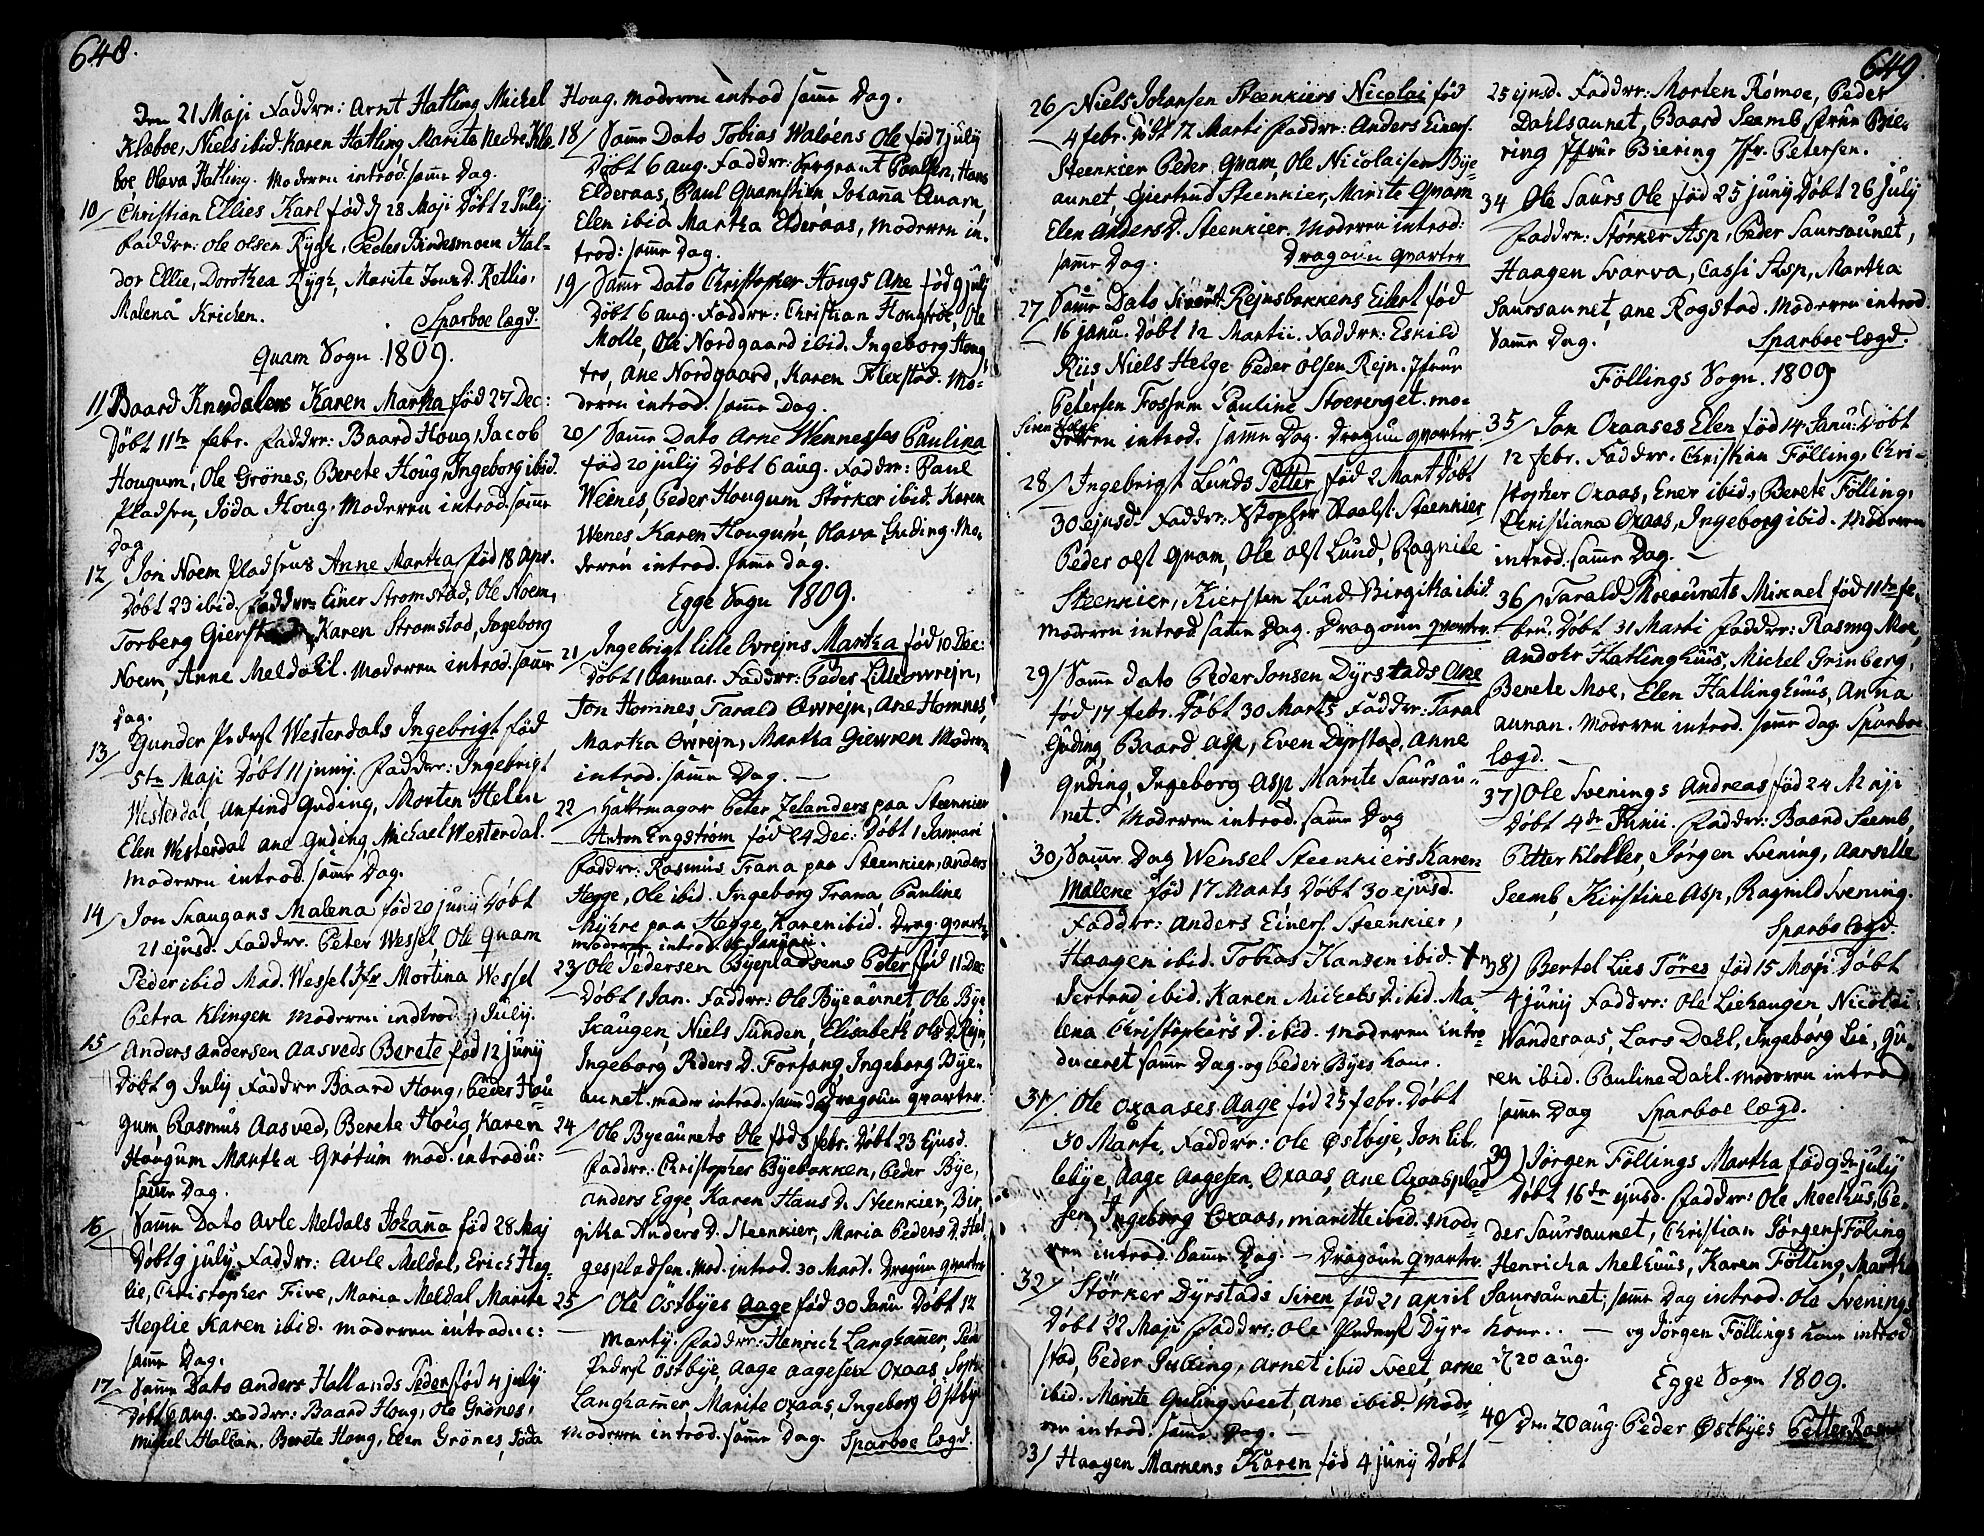 648.
den 21 Maji Faddrr: Arnt Hatling Michel
Klæboe, Niels ibid. Karen Hatling Marite Nedre Klæ-
boe, Olava Hatling. Moderen introd. samme Dag.
10/ Christian Ellies Karl fød d 28 Maji Døbt 2 July
Faddrr: Ole Olsen Rygh, Peder Bindesmoen Hal-
dor Ellie, Dorothea Rygh, Marite Jons D. Retlio,
Malena Krichen.
Sparboe lægd.
Quam Sogn 1809.
11/ Baard Knudalens Karen Martha fød 27 Dec:
Døbt 11te febr. Faddrr: Baard Houg, Jacob
Hougum, Ole Grönes, Berete Houg, Ingeborg ibid.
Pladsen, Jöda Houg. Moderen introd. samme
Dag
12/ Jon Noem Pladsens Anne Martha fød 18 Apr.
Døbt 23 ibid. Faddrr: Einer Stromstad, Ole Noem,
Torberg Karen Stromstad, Ingeborg
Noem, Anne Meldahl. Moderen introd. samme
Dag.
13/ Gunder Pederst Westerdals Ingebrigt fød
5te Maji Døbt 11 junij. Faddrr: Ingebrigt
Westerdal Anfind Guding, Morten Helen
Elen Westerdal ane Guding, Michael Westerdal.
Moderen introd. samme Dag.
14/ Jon Skaugans Malena fød 20 junij Døbt
21 ejusd. Faddrr. Peter Wessel, Ole Quam
Peder ibid Mad. Wessel Jfr Mortina Wessel
Petra Klingen Moderen indtrod. July.
15/ Anders Andersen Aasveds Berete fød 12 junij
Døbt 9 July Faddrr Baard Houg, Peder Hou-
gum, Rasmus Aasved, Berete Houg, Karen
Hougum Martha Grötum mod. introdu:
samme Dag.
16/ Samme Dato Avle Meldals Johanna fød 28 Maj
Døbt 9 july Faddrr: Avle Meldal, Erich Heg-
lie, Christopher Five, Maria Meldal Marite
Heglie Karen ibid. Moderen introduc:
samme Dag.
17/ Samme Dato Anders Hallands Peder fød 4 july
Døbt 6 aug. Faddrr: Baard Houg, Ole Grönes,
Michel Haltan, Berete Houg, Elen Grönes, Jöda
Houg. Moderen introd samme Dag.
18/ Samme Dato Tobias Waløens Ole fød 7 july
Døbt 6 aug. Faddrr: Sergeant Paalsen, Hans
Elderaas, Paul Quamstien Johanna Quam,
Elen ibid Martha Elderaas, Moderen in-
trod: samme Dag.
19/ Samme Dato Christopher Hougs Ane fød 9 july
Døbt 6 aug. Faddrr: Christian Hougtrö, Ole
Molle, Ole Nordgaard ibid. Ingeborg Houg-
trö, Ane Nordgaard, Karen Flexstad. Mo-
deren introd. samme Dag.
20/ Samme Dato Arne Wennesses Paulina
fød 20 july Døbt 6 aug. Faddrr: Paul
Weenes, Peder Hougum Störker ibid. Karen
Wenes Karen Hougum, Olava Guding. Mo-
deren introd. samme dag.
Egge Sogn 1809.
21/ Ingebrigt lille Ovrejns Martha fød 10 Dec:
Døbt 1 Januar. Faddrr: Peder Lilleovrejn,
Jon Homnes, Tarald Ovrejn, Ane Homnes,
Martha Ovrejn, Martha Giewren Moderen
introd. samme Dag.
22/ Hattemager Peter Zelanders paa Steenkier
Anton Engström fød 24 Dec. Døbt 1 Januari
Faddrr: Rasmus Trana paa Steenkier, anders
Hegge, Ole ibid. Ingeborg Trana, Pauline
Myhre paa Hegge, Karen ibid. Drag. quarter
moderen introd. Januari.
23/ Ole Pedersen Byepladsens Peter fød 11 Dec
Døbt 1 Jan. Faddrr: Ole Byeaunet, Ole Bye
Skaugen, Niels Sunden, Elisabeth Ols D. Rejn,
Ingeborg Peders D. Forfang Ingeborg Bye-
aunet. mader introd. samme Dag Dragoun quarter.
24/ Ole Byeaunets Ole fød 3 febr. Døbt 23 Ejusd.
Faddrr: Christopher Byebakken, Peder Bye,
anders Egge, Karen Hans D. Steenkier, Bir-
githa Anders D. Steenkier, Maria Peders D. Hel-
gespladsen. Mod. introd. 30 Mart. Dragun quarter
25/ Ole Östbyes Aage fød 30 Janu. Døbt 12
Martij Faddrr: Henrich Langhammer, Peder
Pederst Östbye, Aage aagesen Oxaas,
Langhammer, Marite Oxaas, Ingeborg Östbye
Moderen introd. samme Dag. Sparboe lægd.
649.
26/ Niels Johansen Steenkiers Nicolai fød
4 febr. Døbt 12 Marti Faddrr: Anders Einers.
Steenkier Peder Quam, Ole Nicolaisen Bye-
aunet, Giertrud Steenkier, Marite Quam
Elen Anders D. Steenkier, Moderen introd:
samme Dag.
Dragoun quarter
27/ Samme Dato Sivert Rejnsbakkens Eilert fød
16 janu. Døbt 12 Martii. Faddrr: Eskild
Riis, Niels Helge Peder Olsen Rejn. Jfrur
Petersen Fossum Pauline Stoerenget. mo-
deren introd. samme Dag. Dragun quarter
28/ Ingebrigt Lunds Petter fød 2 Mart Døbt
30 ejusd. Faddrr: Xstopher Staalst. Steenkier
Peder olst Quam, Ole olst Lund, Ragnile
Steenkier, Kiersten Lund. Birgitha ibid.
Moderen introd. samme Dag. Dragoun quarter.
29/ Samme dato Peder Jonsen Dyrstads Ane
fød 17 febr. Døbt 30 Marts Faddrr: Taral
Guding, Baard Asp, Even Dyrstad, Anne
Guding, Ingeborg Asp Marite Saursau-
net. Moderen introd. samme Dag
30/ Samme Dag Wensel Steenkiers Karen
Malene fød 17 Marts, Døbt 30 ejusd.
Faddrr: Anders Einers. Steenkier,
Haagen ibid. Tobias Hansen ibid.
Gertrud ibid. Karen Michels D. ibid. Ma
lena Christophers D. ibid. Moderen intro-
duceret samme Dag. og Peder Byes kone.
31/ Ole Oxaases Aage fød 25 febr. Døbt
30 Marti, Faddrr: Ole Østbye, Jon Lil-
lebye, Aage Aagesen, Oxaas, Ane Oxaasplad-
sen, Ingeborg Oxaas, maritte ibid. Mod-
ren introd. Samme Dag. — Dragoun quarter.
32/ Störker Dyrstads Siren fød 21 april
Døbt 22 Maji Faddrr: Ole Pederst Dyr-
stad, Peder Julling, Arnet ibid Sveet, arne
ibid. Marite Guling Sveet, Ane ibid. Mode-
ren introd. samme Dag. —
33/ Haagen Mamens Karen fød 4 junij Døbt
25 ejusd. Faddrr: Morten Römoe, Peder
Dahlsaunet, Baard Seemb, frue Bie-
ring Jfrur Biering Jfr. Petersen.
34/ Ole Saurs Ole fød 25 junij Døbt 26 july
Faddrr: Störker Asp, Peder Saursaunet,
Haagen Svarva, Cassi Asp, Martha
Saursaunet, ane Rogstad. Moderen introd.
Samme Dag. Sparboe lægd.
Föllings Sogn. 1809
35/ Jon Oxaases Elen fød 14 Janu: Døbt
12 febr. Faddrr. Christian Fölling, Chri-
stopher Oxaas, Ener ibid, Berete Fölling,
Christiana Oxaas, Ingeborg ibid. Moderen
introd. samme Dag. —
36/ Tarald Moeaunets Mikael fød 11te fe-
bru. Døbt 31 Marti Faddrr: Rasmg Moe,
Andohr Hatlinghuus, Michel Grinberg,
Berete Moe, Elen Hatlinghuus, Anna
aunan. Moderen introd. samme Dag Sparboe
lægd. —
37/ Ole Svenings Andreas fød 24 Maji
Døbt 4de Junii. Faddrr: Baard Seemb,
Petter Klokker, Jörgen Svening, Aarselle
Seemb, Kirstine Asp, Ragnild Svening.
Sparbo lægd.
38) Bertel Lies Töres fød 15 Maji Døbt
4 junij Faddrr: Ole Liehaugen, Nicolai
Wanderaas, Lars Dahl, Ingeborg Lie, Gu-
ren ibid. Pauline Dahl. Moderen introd
samme Dag Sparboe lægd.
39) Jörgen Föllings Martha fød 9de july
Døbt 16de ejusd. Faddrr: Ole Meelhus, Pe-
der Saursaunet, Christian Jörgens Föling
Henricha Melhuus, Karen Fölling, Martha
Saursaunet, samme Dag introd. Ole Svenings
kone. — og Jörgen Föllings kone introd.
d 20 aug.
Egge Sogn 1809.
40/ Den 20 aug. Peder Østbyes Petter